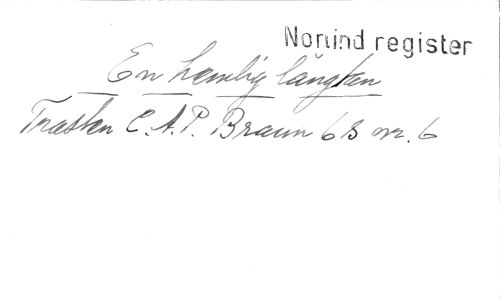 Norlind register
En hemlig längtan
Trasten C.A.P. Braun 63 nr. 6